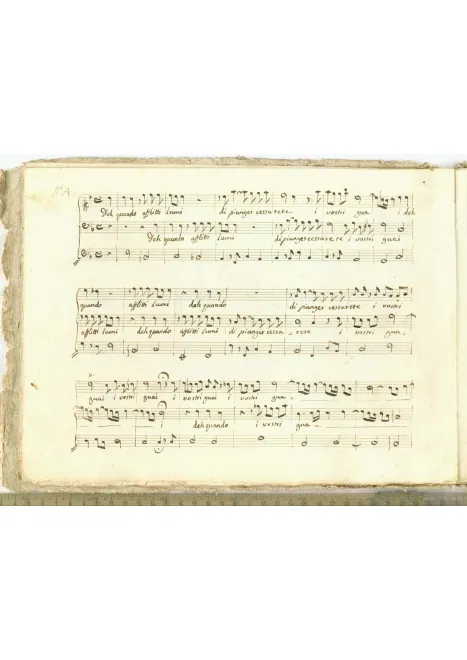 Deh quando aflitti lumi di pianger cessarete i vostri guai deh
Deh quando aflitti lumi di pianger cessarete i vostri guai
quando aflitti lumi deh quando di pianger cessarete i vostri
aflitti lumi deh quando aflitti lumi di pianger cessa-rete i vostri gua-
guai i vostri guai i vostri guai i vostri gua-
i deh quando i vostri gua-